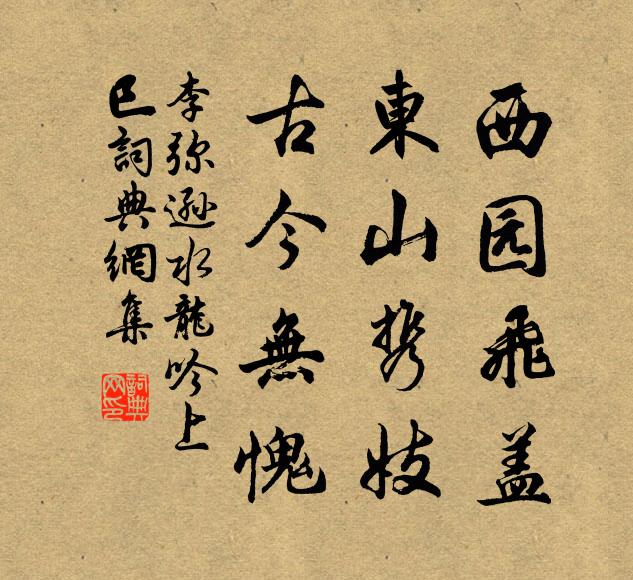 西园飛盖
東山携妓
古今無愧
李弥遜水龍吟上
巳詞典網集
詞典網印